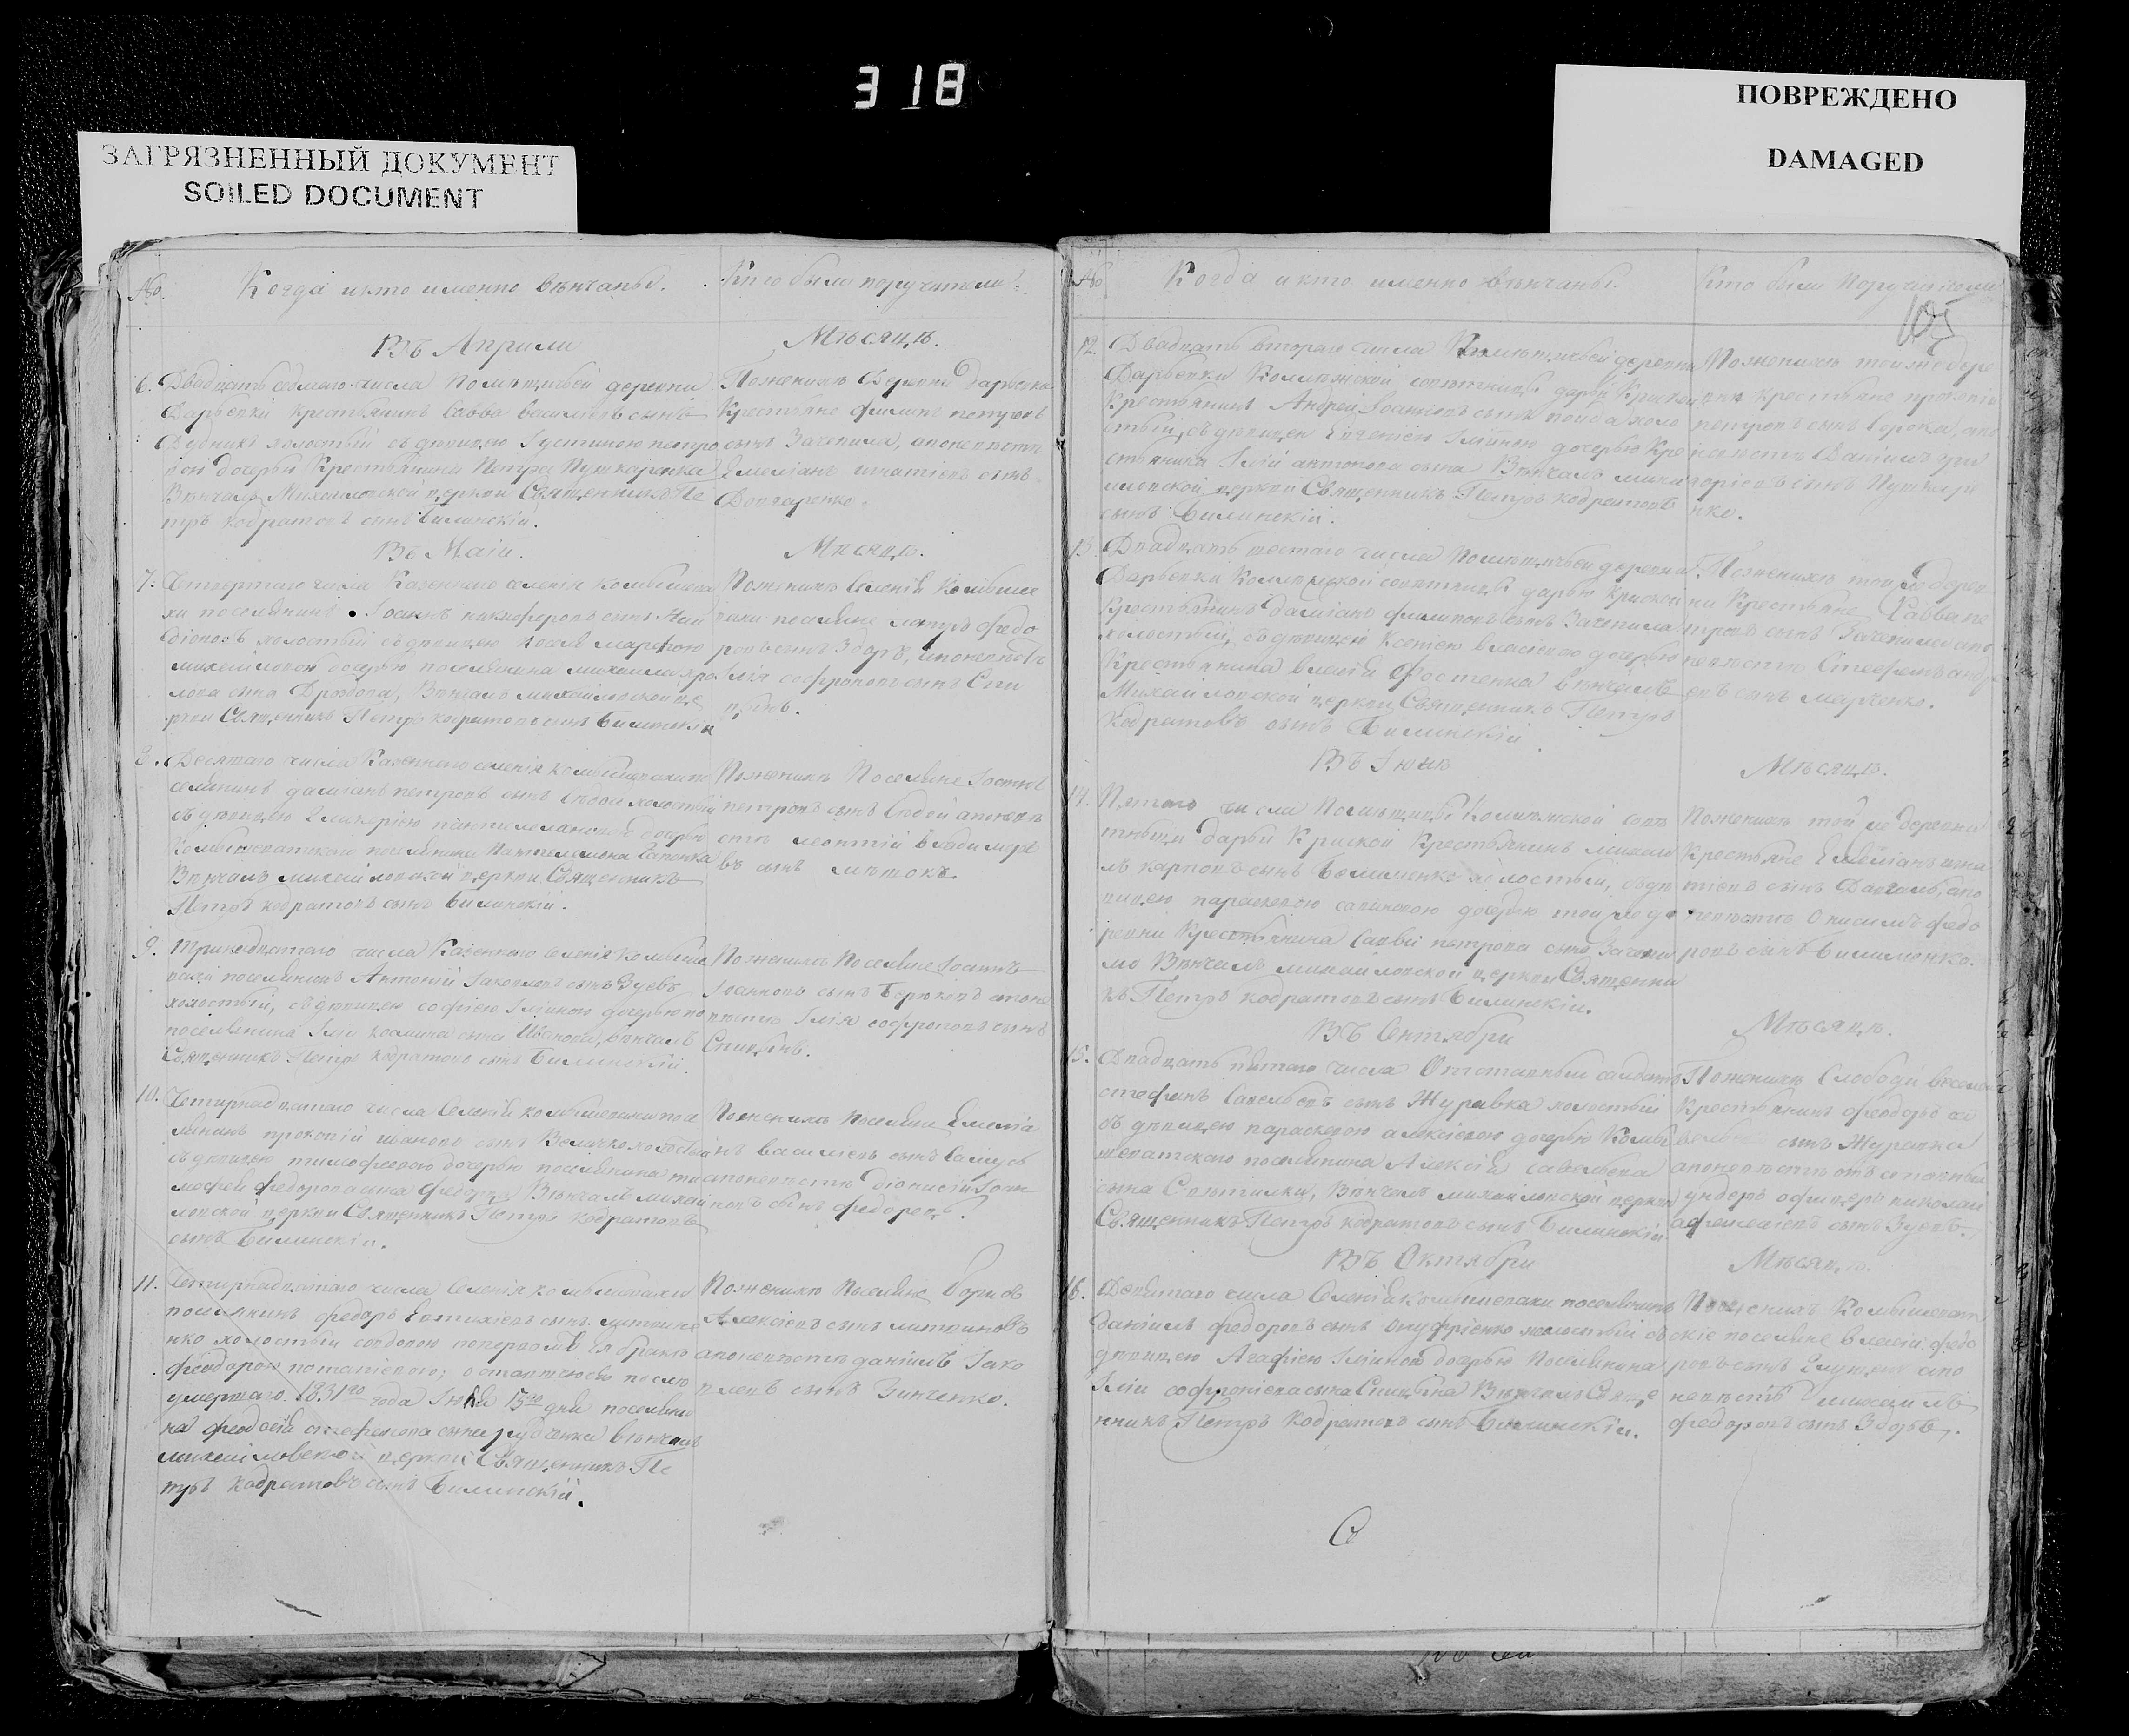 318
ЗАГРЯЗНЕННЫЙ ДОКУМЕНТ
SOILED DOCUMENT
ПОВРЕЖДЕНО
DAMAGED
№. Когда и кто именно вѣнчаны. Кто были поручители.
Въ Априли Мѣсяцѣ.
6. Двадцать седмаго числа помѣщичьей деревни
Дарьевки крестьянинъ Савва Василіевъ сынъ
холостый съ дѣвицею Іустиною Петро
вою дочерью крестьянина Петра Пушкаренка
Вѣнчалъ Михайловской церкви Священникъ Пе
тръ Кодратовъ сынъ Билинскій.
По женихѣ деревни Дарьевки
Крестьяне Филипъ Петровъ
сынъ Зачепила, а по невѣстѣ
Емеліанъ Игнатіевъ сынъ
Въ Маіи. Мѣсяцѣ.
7. Четвертаго числа Казеннаго селенія Комышева
хи поселянинъ Іоаннъ Никифоровъ сынъ
холостый съ дѣвицею Марфою
Михайловою дочерью поселянина Михаила
лова сына Дроздова, Вѣнчалъ Михайловской це
ркви Священникъ Петръ Кодратовъ сынъ Билинскій
По женихѣ Селенія Комыше
вахи поселяне Федо
ровъ сынъ Здоръ, а по невѣстѣ
Илія Софроновъ сынъ Спи
цынъ.
8. Десятаго числа Казеннаго селенія Комышевахи по
селянинъ Даміанъ Петровъ сынъ Сѣдой холостый
съ дѣвицею Гликеріею Пантелемоновою дочерью
Комышеватскаго поселянина Пантелемона Гапонка
Вѣнчалъ Михайловской церкви Священникъ
Петръ Кодратовъ сынъ Билинскій.
По женихѣ Поселяне Іоаннъ
Петровъ сынъ Сѣдой а по невѣ
стѣ Леонтій Владимиро
въ сынъ
9. Тринадцатаго числа Казеннаго селенія Комыше
вахи поселянинъ Антоній Іаковлевъ сынъ Зуевъ
холостый, съ дѣвицею Софіею Іліиною дочерью по
поселянина Іліи сына Иванова, вѣнчалъ
Священникъ Петръ Кодратовъ сынъ Билинскій
По женихѣ Поселяне Іоаннъ
Іоанновъ сынъ а по не
вѣстѣ Ілія Софроновъ сынъ
Спицынъ.
10. Четырнадцатаго числа Селенія Комышевахи посе
лянинъ Прокопій Ивановъ сынъ Величко холостый
съ дѣвицею Тимофеевою дочерью поселянина Ти
мофея Федорова сына Федорца Вѣнчалъ Михай
ловской церкви Священникъ Петръ Кодратовъ
сынъ Билинскій.
По женихѣ Поселяне Емеліа
нъ Василіевъ сынъ Самусь
а по невѣстѣ Діонисій Іоан
новъ сынъ Федорецъ.
11. Четырнадцатаго числа Селенія Комышевахи
поселянинъ Федоръ Евтихіевъ сынъ Литвине
нко холостый со вдовою по первомъ ея бракѣ
Феодорою Потапіевою; оставшеюся послѣ
умершаго 1831го года дня поселяни
на Феодосія Стефанова сына вѣнчалъ
Михайловской церкви Священникъ Пе
тръ Кодратовъ сынъ Билинскій.
По женихѣ Поселяне Борисъ
Алексіевъ сынъ Литвиновъ
а по невѣстѣ Даніилъ Іако
влевъ сынъ Зинченко.
№ Когда и кто именно вѣнчаны. Кто были Поручители
105
12. Двадцать втораго числа Помѣщичьей деревни
Дарьевки Коллежской совѣтницы Дарьи Криской
Крестьянинъ Андрей Іоанновъ сынъ холо
стый, съ дѣвицею Евгеніею Іліиною дочерью Кре
стьянина Іліи Антонова сына Вѣнчалъ Михай
ловской церкви Священникъ Петръ Кодратовъ
сынъ Билинскій.
По женихѣ той же дере
вни крестьяне
Петровъ сынъ Сорока, а по
невѣстѣ Даніилъ Гри
горіевъ сынъ Пушкаре
нко.
13. Двадцать шестаго числа Помѣщичьей деревни
Дарьевки Коллежской совѣтницы Дарьи Криской
Крестьянинъ Даміанъ Филиповъ сынъ Зачепила
холостый, съ дѣвицей Ксеніею Власіевою дочерью
Крестьянина Власія Фостенка вѣнчалъ
Михайловской церкви Священникъ Петръ
Кодратовъ сынъ Билинскій.
По женихѣ той же дерев
ни Крестьяне Савва Пе
тровъ сынъ Зачепило а по
невѣстѣ Стефанъ
евъ сынъ Марченко.
Въ Іюнѣ Мѣсяцѣ.
14. Пятаго числа Помѣщицы Коллежской совѣ
тницы Дарьи Криской Крестьянинъ Михаи
лъ Карповъ сынъ Билименко холостый, съ дѣ
вицею Параскевою Савиною дочерью той же де
ревни Крестьянина Саввы Петрова сына Зачепи
ло Вѣнчалъ Михайловской церкви Священни
къ Петръ Кодратовъ сынъ Билинскій.
По женихѣ той же деревни
Крестьяне Емеліанъ Игна
тіевъ сынъ а по
невѣстѣ Онисимъ Федо
ровъ сынъ Билименко.
Въ Сентябри Мѣсяцѣ.
15. Двадцать пятаго числа Отставный салдатъ
Стефанъ Савельевъ сынъ Журавка холостый
съ дѣвицею Параскевою Алексіевою дочерью Комы
шеватскаго поселянина Алексія Савельева
сына Свѣтилки, Вѣнчалъ Михайловской церкви
Священникъ Петръ Кодратовъ сынъ Билинскій
По женихѣ Слободы
Крестьянинъ Феодоръ Са
вельевъ сынъ Журавка
а по невѣстѣ отставный
ундеръ офицеръ Николай
Афанасіевъ сынъ Зуевъ.
Въ Октябри Мѣсяцѣ.
16. Девятаго числа Селенія Комышевахи поселянинъ
Даніилъ Федоровъ сынъ Онуфріенко холостый съ
дѣвицею Агафіею Іліиною дочерью Поселянина
Іліи Софроніева сына Спицына Вѣнчалъ Свяще
нникъ Петръ Кодратовъ сынъ Билинскій.
По женихѣ Комышеват
скіе поселяне Власій Федо
ровъ сынъ а по
невѣстѣ Михаилъ
Федоровъ сынъ Здоръ.